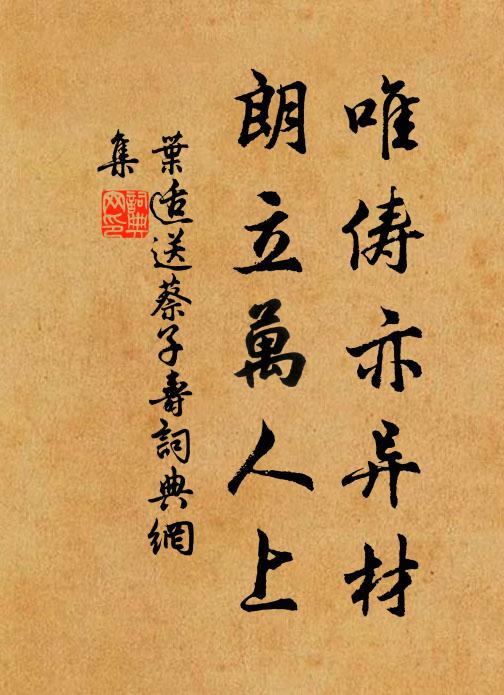 唯俦亦异材
朗立萬人上
葉适送蔡子壽詞典網
集
詞典
网印